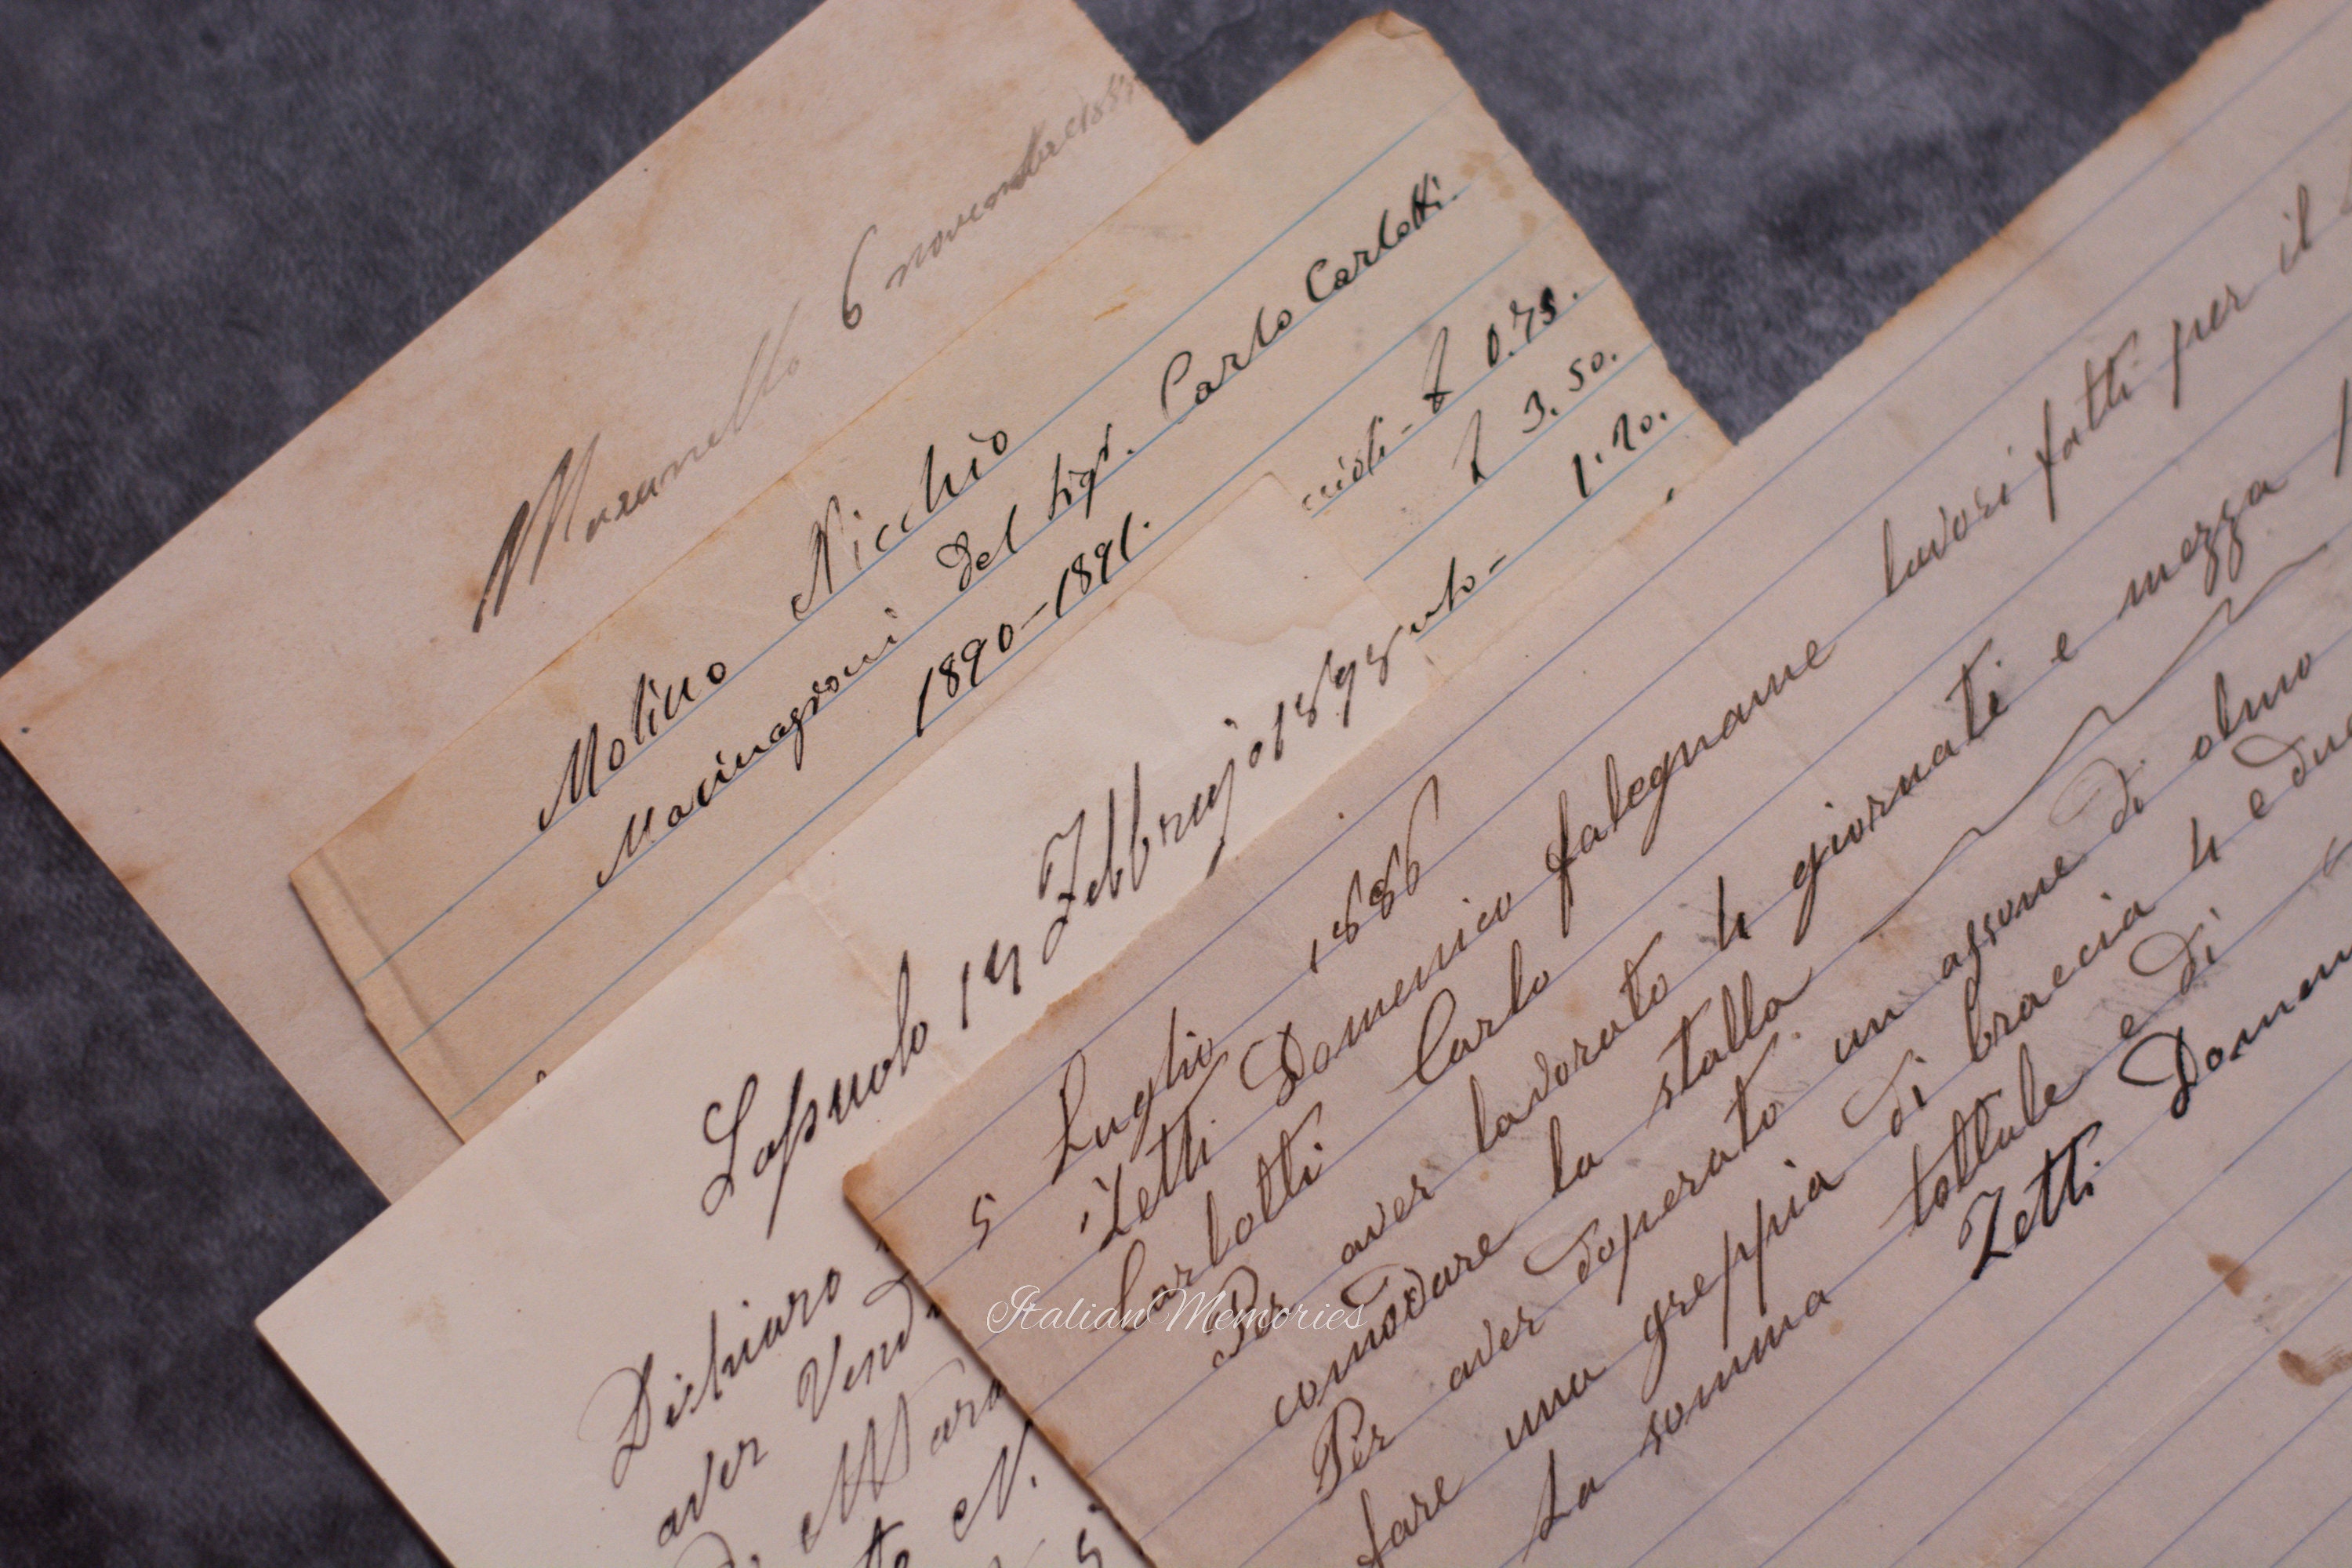 6 novembre
Molino Nicchio
Macinagioni del Sigr. Carlo Carlotti.
1890-1891.
£ 0.75.
£ 3.50.
1.20.
14 Febbrujo 1895
Dichiaro
aver Vend
di Mara
N.
5 Luglio 1886
Zetti Domenico falegname lavori fatti per il
Carlotti Carlo
Per aver lavorato 4 giornate e mezza
comodare la stalla
Per aver doperato un assone di olmo
fare una greppia di braccia 4 e due
La somma tottale e di
Zetti Domen
ItalianMemories